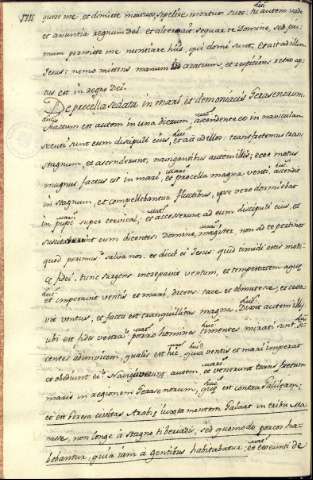 quere me et dimitte mortuos sepelire mortuos suos: tu autem vade
et annuntia regnum dei. et alter ait sequar te Domine, sed pri-
mum permitte me nuntiare his, qui domi sunt, et ait ad illum
Jesus: nemo mittens manum in aratrum, et respiciens retro ap-
tus est in regno dei.
De procella sedata in mari et demoniacis Gerasenorum.
Factum est autem in una dierum, ascendente eo in naviculam
secuti sunt eum discipuli eius, et ait ad illos: transfretemus trans
stagnum, et ascenderunt, navigantibus autem illis, ecce motus
magnus factus est in mari, et procella magna venti, ascendit
in stagnum, et compellebantur fluctibus, ipse vero dormiebat
in puppi super cervical, et accesserunt ad eum discipuli eius, et
suscitaverunt eum dicentes: domine, magister non ad te pertinet
quod perimus? salva nos. et dicit eis Jesus: quid timidi estis modi-
ce fidei. tunc surgens increpavit ventum, et tempestatem aquę
et imperavit ventis et mari, dicens: tace et obmutesce, et cessa-
vit ventus, et facta est tranquillitas magna. Dixit autem illis
ubi est fides vestra? porro homines timentes mirati sunt di-
centes adinvicem, qualis est hic, quia ventis et mari imperat
et obediunt ei? Navigaverunt autem et venerunt trans fretum
maris in regionem Gerasenorum, quę est contra Galileam,
et est Gerasa civitas Arabię iuxta montem Galaat in tribu Ma-
nasse, non longe à stagno tiberiadis, sed quomodo porcos ha-
bebantur, quia iam a gentibus habitabatur, et exeunti de